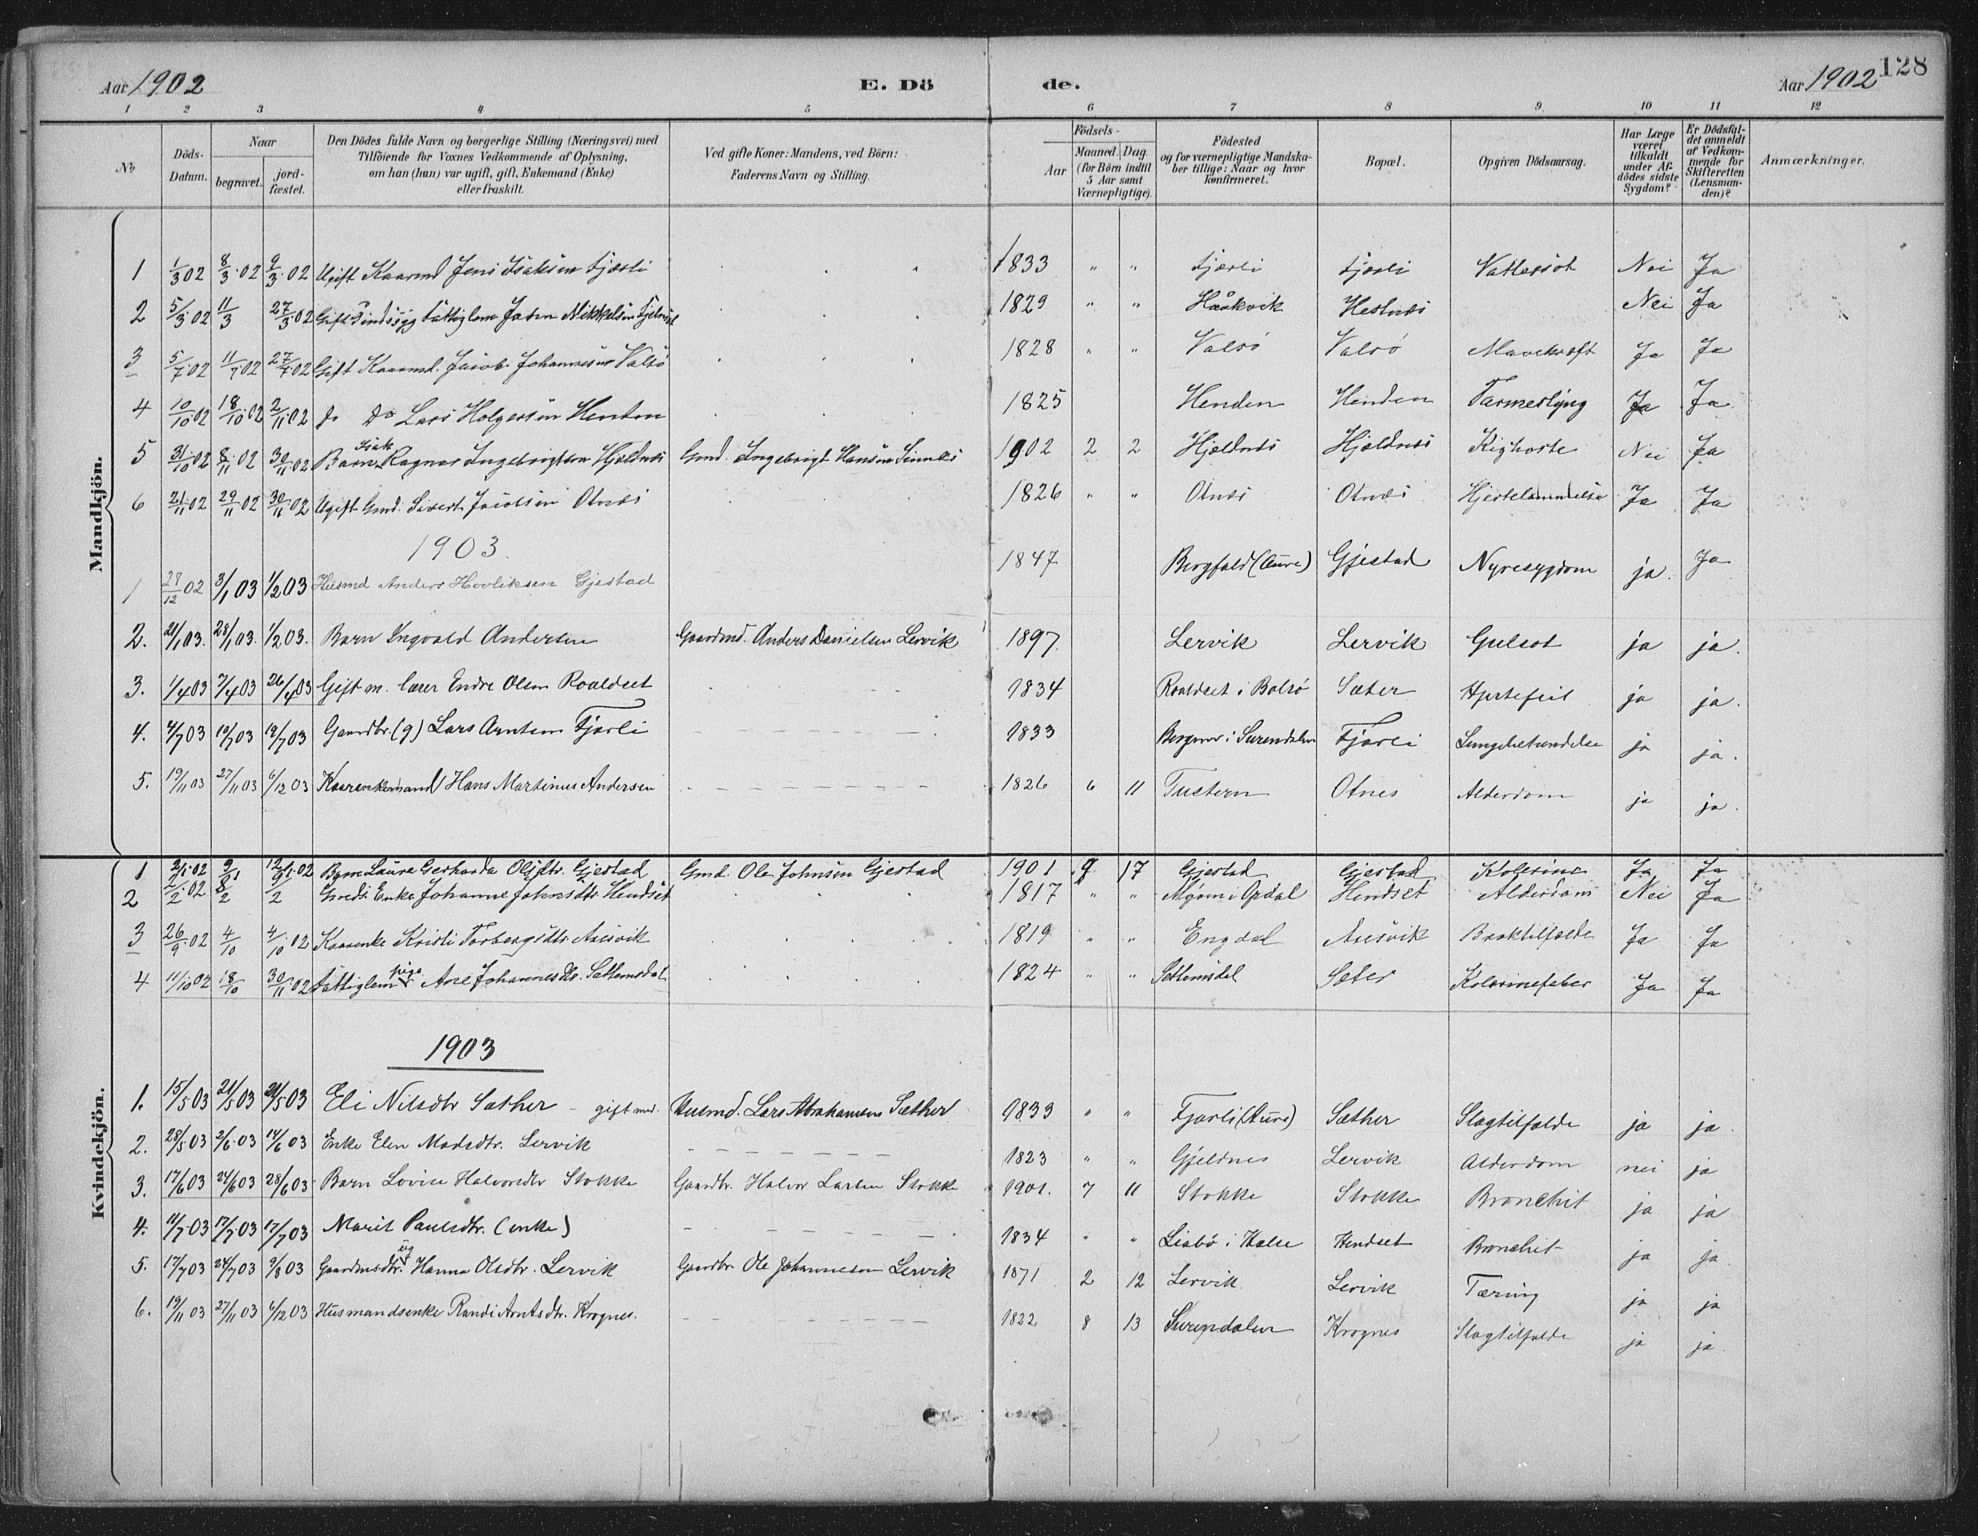 Aar 1902 E. Dö de. Aar 1902 128
1 2 3 4 5 6 7 8 9 10 11 12
№ Döds-Datum. Naar begravet. jord-fæstet. Den Dödes fulde Navn og borgerlige Stilling (Næringsvei) med Tilföiende for Voxnes Vedkommende af Oplysning, om han (hun) var ugift, gift, Enkemand (Enke) eller fraskilt. Ved gifte Koner: Mandens, ved Börn: Faderens Navn og Stilling. Födsels- Aar Maaned. Dag. (for Börn indtil 5 Aar samt Værnepligtige). Födested og for værnepligtige Mandska-ber tillige: Naar og hvor konfirmeret. Bopæl. Opgiven Dödsaarsag. Har Læge været tilkaldt under Af-dödes sidste Sygdom? Er Dödsfal-det anmeldt af Vedkom-mende for Skifteretten (Lensman-den)? Anmærkninger.
Mandkjön.
1 1/3 02 8/3 02 9/3 02 Ugift Kaarmd Jens Isaksen Fjærli 1833 " " Fjærli Fjærli Vattersot Nei Ja
2 5/3 02 11/3 27/3 02 Gift Mikkelsen 1829 " " Haakvik Hestnæs Nei Ja
3 5/7 02 11/7 02 27/7 02 Gift Kaarmd. Jacob Johannesen Valsö 1828 " " Valsö Valsö Mavekræft Ja Ja
4 10/10 02 18/10 02 2/11 02 do Do Lars Holgersen Henden 1825 Henden Henden Tarmeslyng Ja Ja
5 31/10 02 8/11 02 30/11 02 Barn Isak Ragnar Ingebrigtsen Hjeldnæs Gmd. Ingebrigt Hansen 1902 2 2 Hjeldnæs Hjeldnæs Kighoste Nei Ja
6 21/11 02 29/11 02 30/11 02 Ugift Gmd. Sivert Jacobsen Otnæs 1826 " " Otnæs Otnæs Hjertelammelse Ja Ja
1903.
1 28/12 02 3/1 03 1/2 03 Husmd Anders Gjestad 1847 Bergfald (Aure) Gjestad Nyresygdom ja. Ja
2. 21/1 03. 28/1 03. 1/2 03. Barn Ingvald Andersen Gaardmd. Anders Danielsen Lervik 1897. Lervik Lervik Gulsot ja ja.
3. 1/4 03 7/4 03 26/4 03 Gift m. lærer Endre Olsen Roaldset 1834 Roaldset i Bolsö Sæter Hjertefeil ja ja.
4. 4/7 03 10/7 03 19/7 03 Gaardbr. (g) Lars Arntsen Fjærli 1833 i Surendalen Fjærli Lungebetændelse ja ja.
5. 19/11 03 27/11 03 6/12 03 Kaarenkemand Hans Martinus Andersen 1826 6 11 Tustern Otnes Alderdom ja ja.
Kvindekjön.
1 2/1 02 9/1 12/1 02 Barn Laura Gerharda Olsdtr. Gjestad Gmd. Ole Johnsen Gjestad 1901 9 17 Gjestad Gjestad Kolerine Ja Ja
2 2/2 02 8/2 9/2 Enke Johanne Johnsdtr Hendset 1817 " " i Opdal Hendset Alderdom Nei Ja
3 26/9 02 4/10 4/10 02 Kaarenke Kristi Torbergsdtr Aresvik 1819 " " Engdal Aresvik Broktilfælde Ja Ja
4 11/10 02 18/10 30/11 02 Fattiglem pige Ane Johannesdtr. Settemsdal 1824 " " Settemsdal Sæter Kolerinefeber Ja Ja
1903
1. 15/5 03 21/5 03 24/5 03 Eli Nilsdtr Sæther - gift med. Husmd. Lars Abrahamsen Sæther 1833 " " Fjærli (Aure) Sæther Slagtilfælde ja ja.
2. 28/5 03 2/6 03 14/6 03 Enke Elen Madsdtr. Lervik 1823 " " Gjeldnes Lervik Alderdom nei ja
3. 17/6 03 24/6 03 28/6 03 Barn Lovise Halvorsdtr Stokke Gaardbr. Halvor Larsen Stokke 1901. 7 11 Stokke Stokke Bronchit ja ja
4. 11/7 03 17/7 03 17/7 03 Marit Paulsdtr. (enke) 1834 " " Liabö i Halse Hendset Bronchit ja ja.
5. 17/7 03 24/7 03 9/8 03 Gaardmsdtr. ug Hanna Olsdtr. Lervik Gaardbr Ole Johannesen Lervik 1871 2 12 Lervik Lervik Tæring ja ja
6. 19/11 03 27/11 03 6/12 03 Husmandsenke Randi Arntsdtr. Krognes. 1822 8 13 Surendalen Krognes Slagtilfælde ja ja